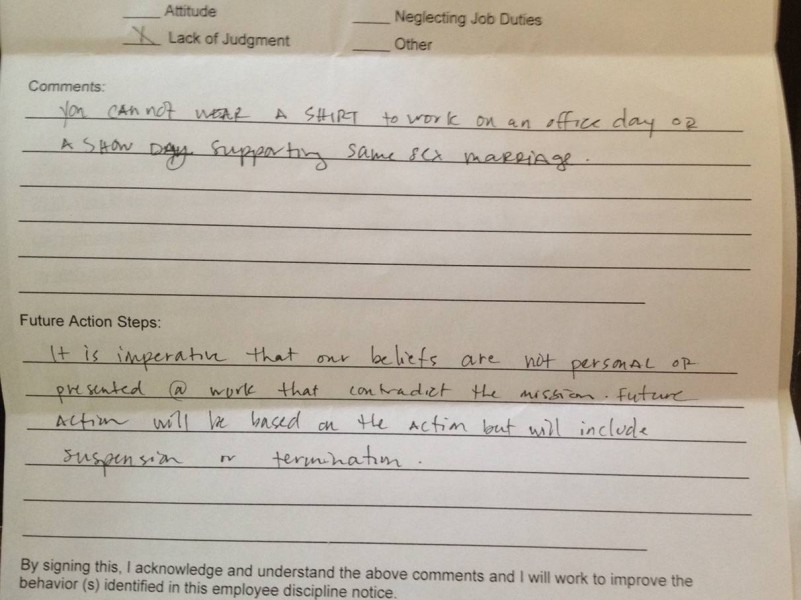 ___ Attitude ___ Neglecting Job Duties
_X_ Lack of Judgment ___ Other
Comments:
You CANnot WEAR A SHIRT to work on an office day OR
A SHOW DAY supporting same sex marriage.
Future Action Steps:
It is imperative that our beliefs are not personal or
presented @ work that contradict the mission. Future
Action will be based on the Action but will include
suspension or termination.
By signing this, I acknowledge and understand the above comments and I will work to improve the
behavior (s) identified in this employee discipline notice.